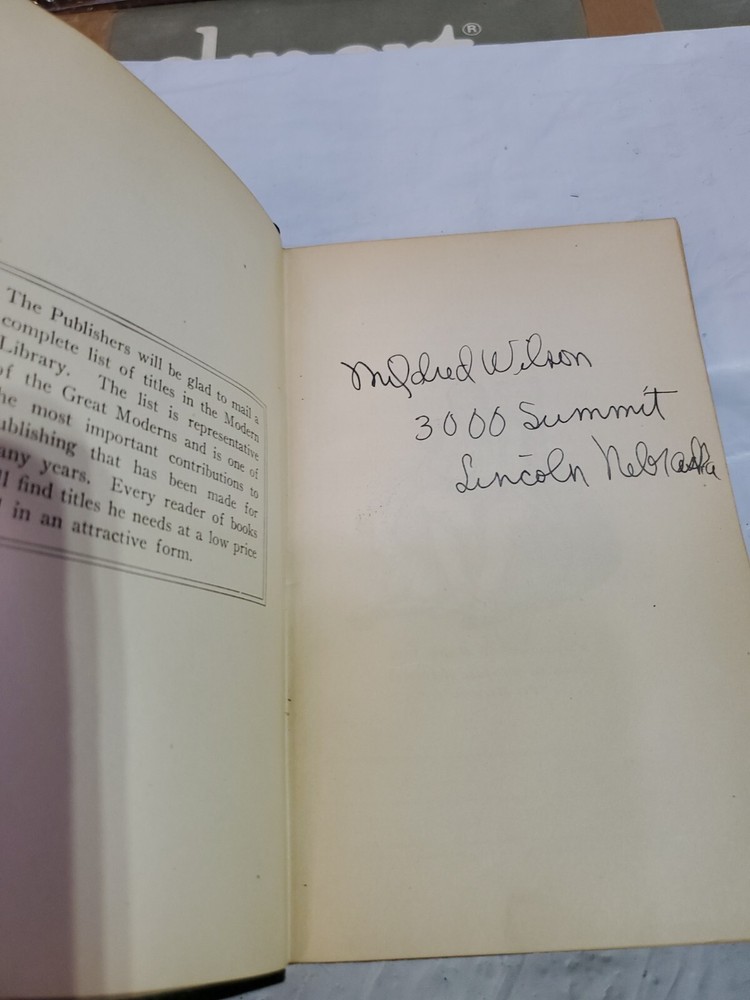 ®
The Publishers will be glad to mail a
complete list of titles in the Modern
Library. The list is representative
of the Great Moderns and is one of
the most important contributions to
publishing that has been made for
many years. Every reader of books
find titles he needs at a low price
in an attractive form.
Mildred Wilson
3000 Summit
Lincoln Nebraska